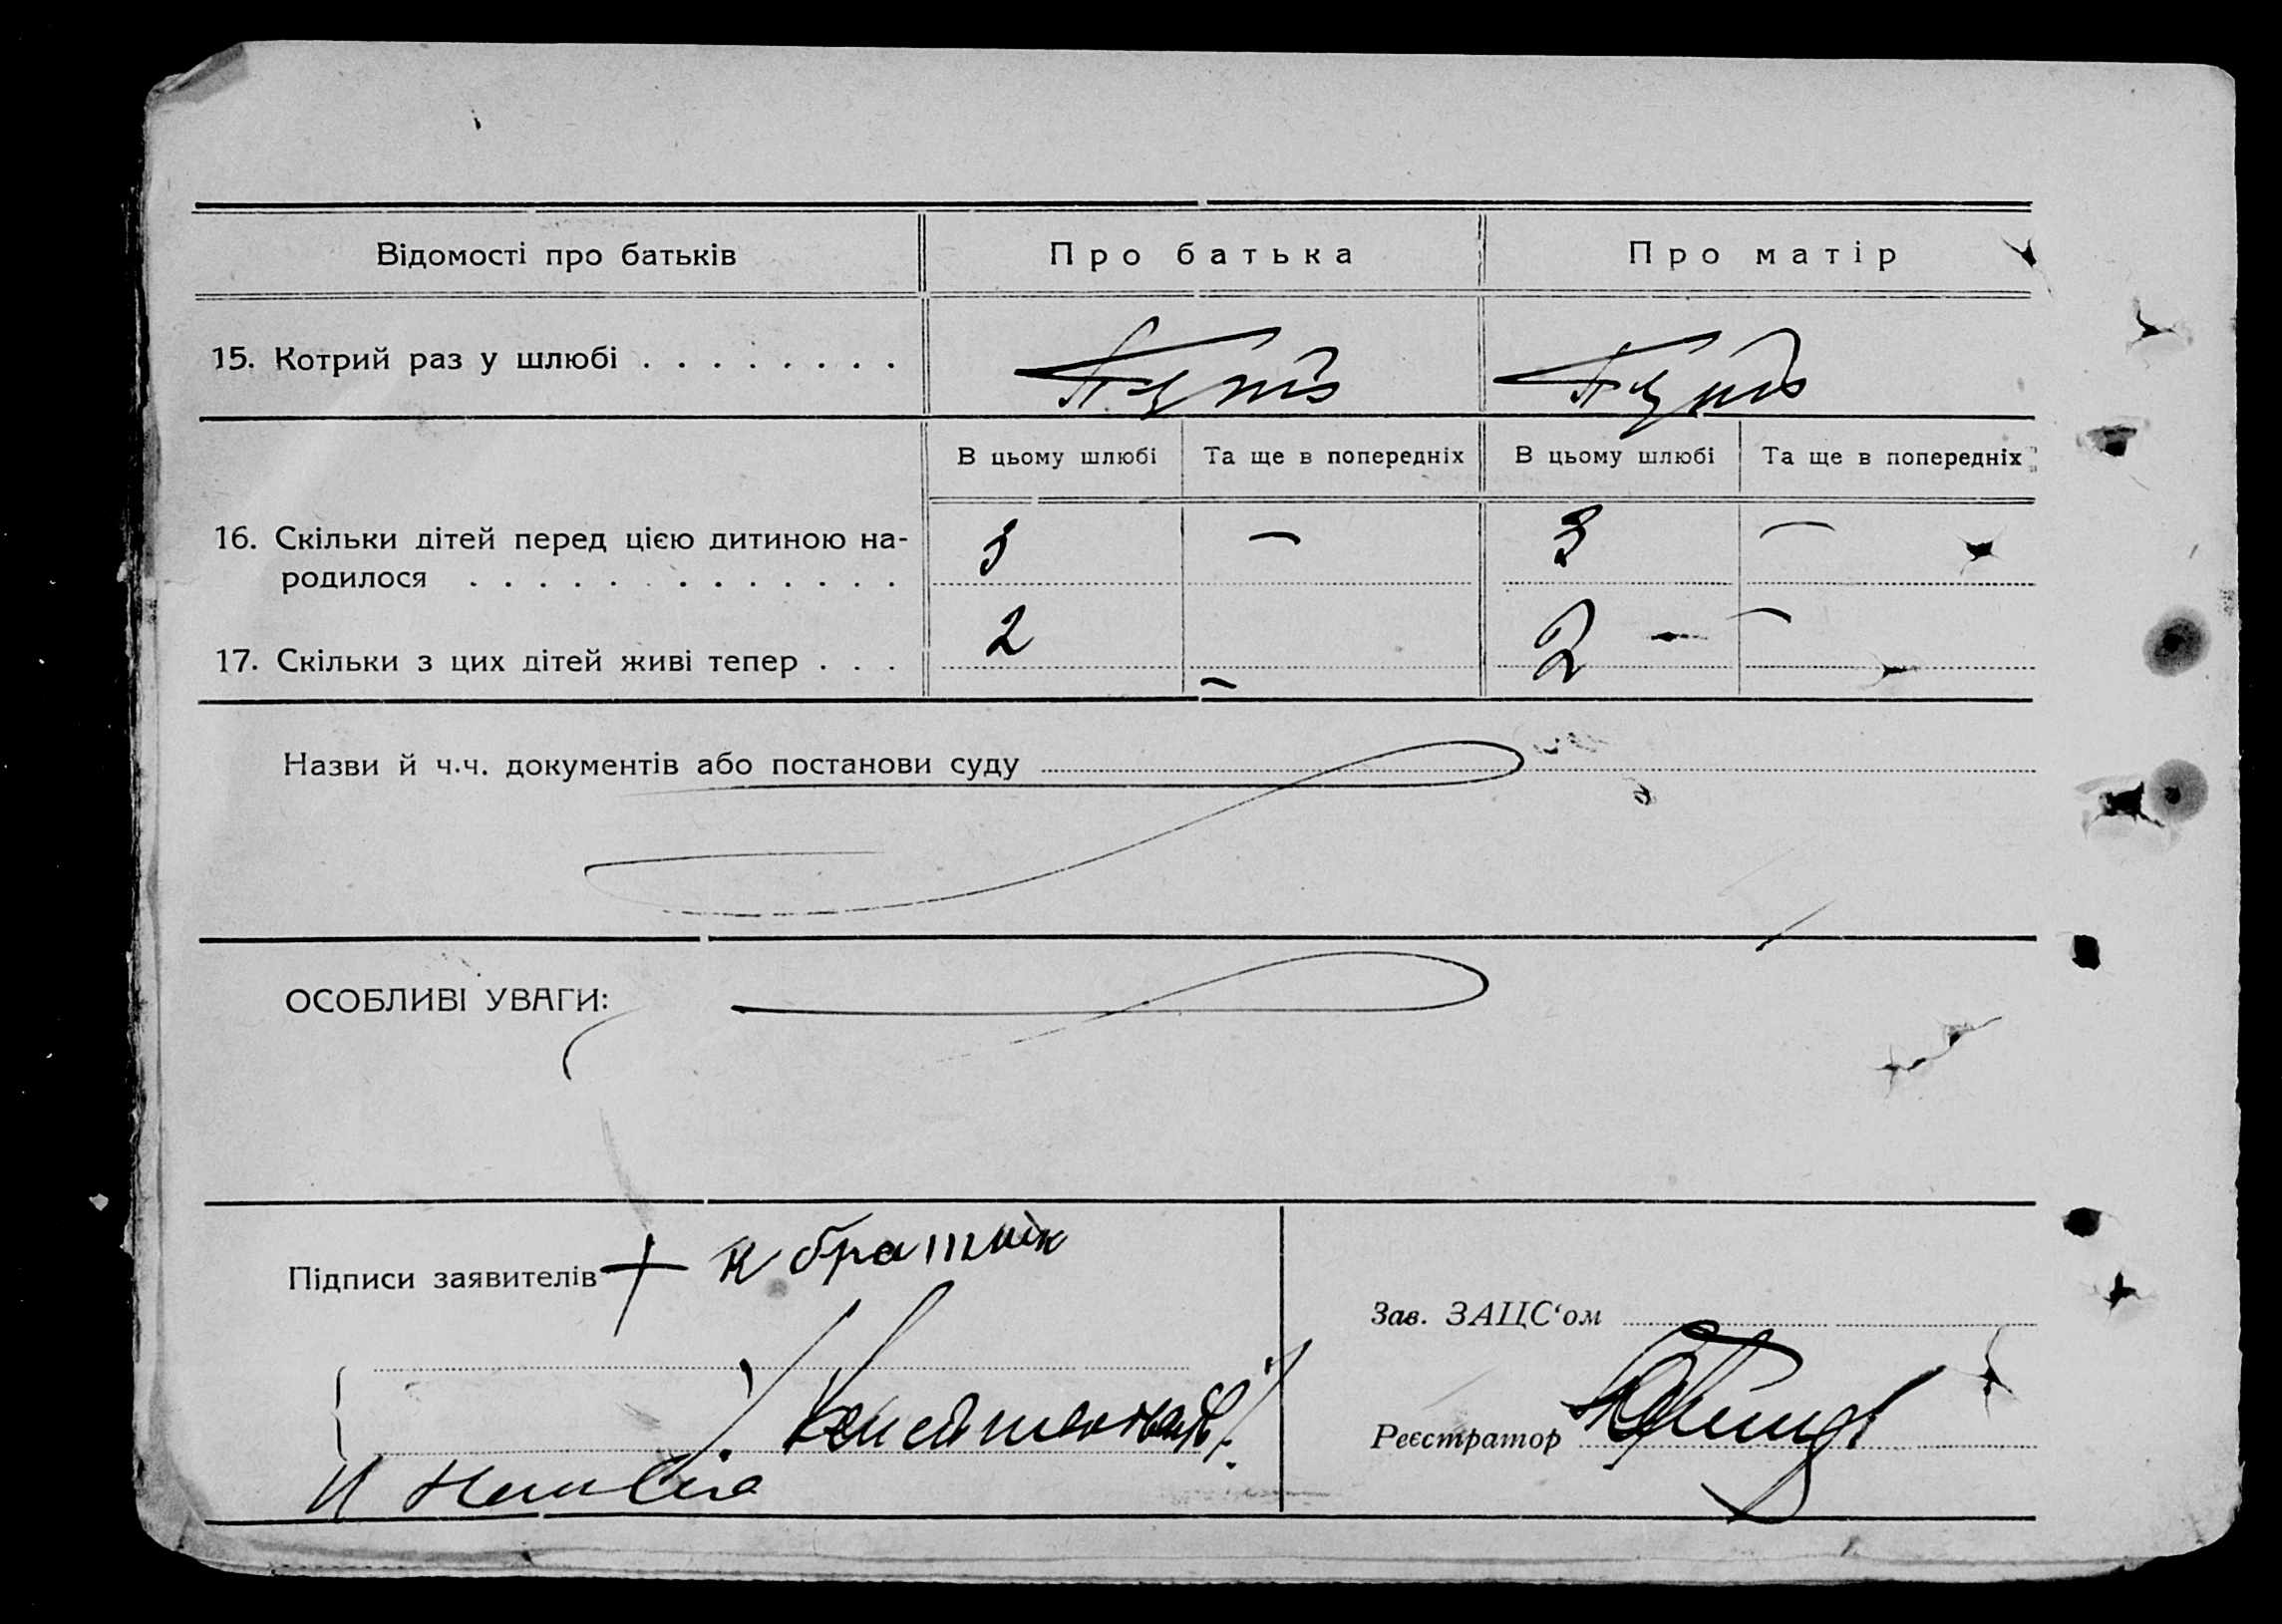 Відомості про батьків
Про батька
Про матір
15. Котрий раз у шлюбі . . . . . . . .
В цьому шлюбі
Та ще в попередніх
В цьому шлюбі
Та ще в попередніх
16. Скільки дітей перед цією дитиною на-
родилося . . . . . . . . . . . . .
3
—
3
—
17. Скільки з цих дітей живі тепер . . .
2
—
2
—
Назви й ч.ч. документів або постанови суду
ОСОБЛИВІ УВАГИ:
Підписи заявителів + К братник
Зав. ЗАЦС‘ом
Реєстратор